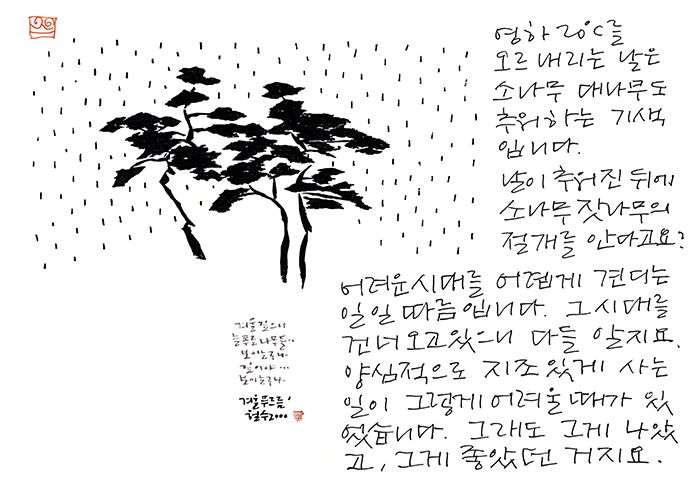 영하 20℃를
오르내리는 날은
소나무 대나무도
추워하는 기색
입니다.
날이 추워진 뒤에
소나무 잣나무의
절개를 안다고요?
어려운시대를 어렵게 견디는
일일 따름입니다. 그 시대를
건너오고있으니 다들 알지요.
양심적으로 지조있게 사는
일이 그렇게 어려울때가 있
었습니다. 그래도 그게 나았
고, 그게 좋았던 거지요.
겨울 깊으니
늘푸른 나무들이
보이는구나.
깊어야...
보이는구나.
겨울푸르름'
철수2000